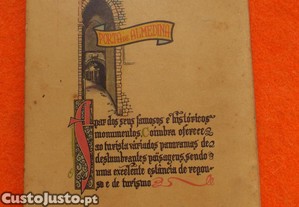 PORTA DE ALMEDINA
A par dos seus famosos e históricos
monumentos, Coimbra oferece
ao turista variados panoramas de
deslumbrantes paisagens, sendo
uma excelente estância de repou-
so e de turismo
CustoJusto.pt